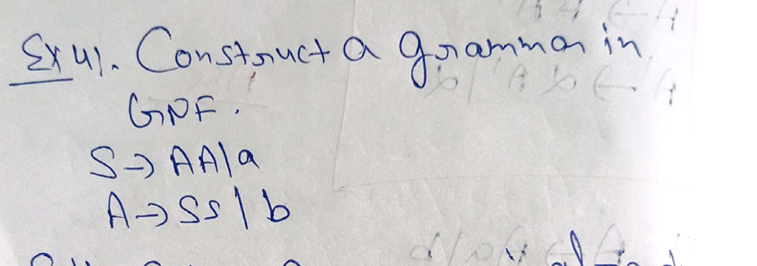 Ex 41. Construct a grammar in
GNF.
S → AA | a
A → SS | b